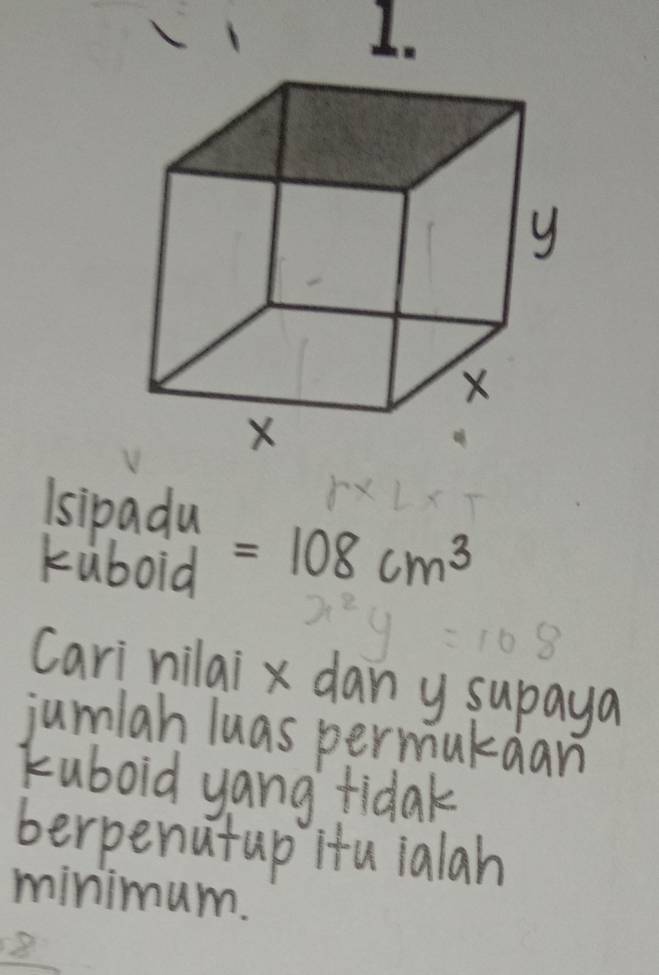 1.
y
x
x
V
r × L × T
Isipadu
kuboid = 108 cm³
x²y = 108
Cari nilai x dan y supaya
jumlah luas permukaan
kuboid yang tidak
berpenutup itu ialah
minimum.